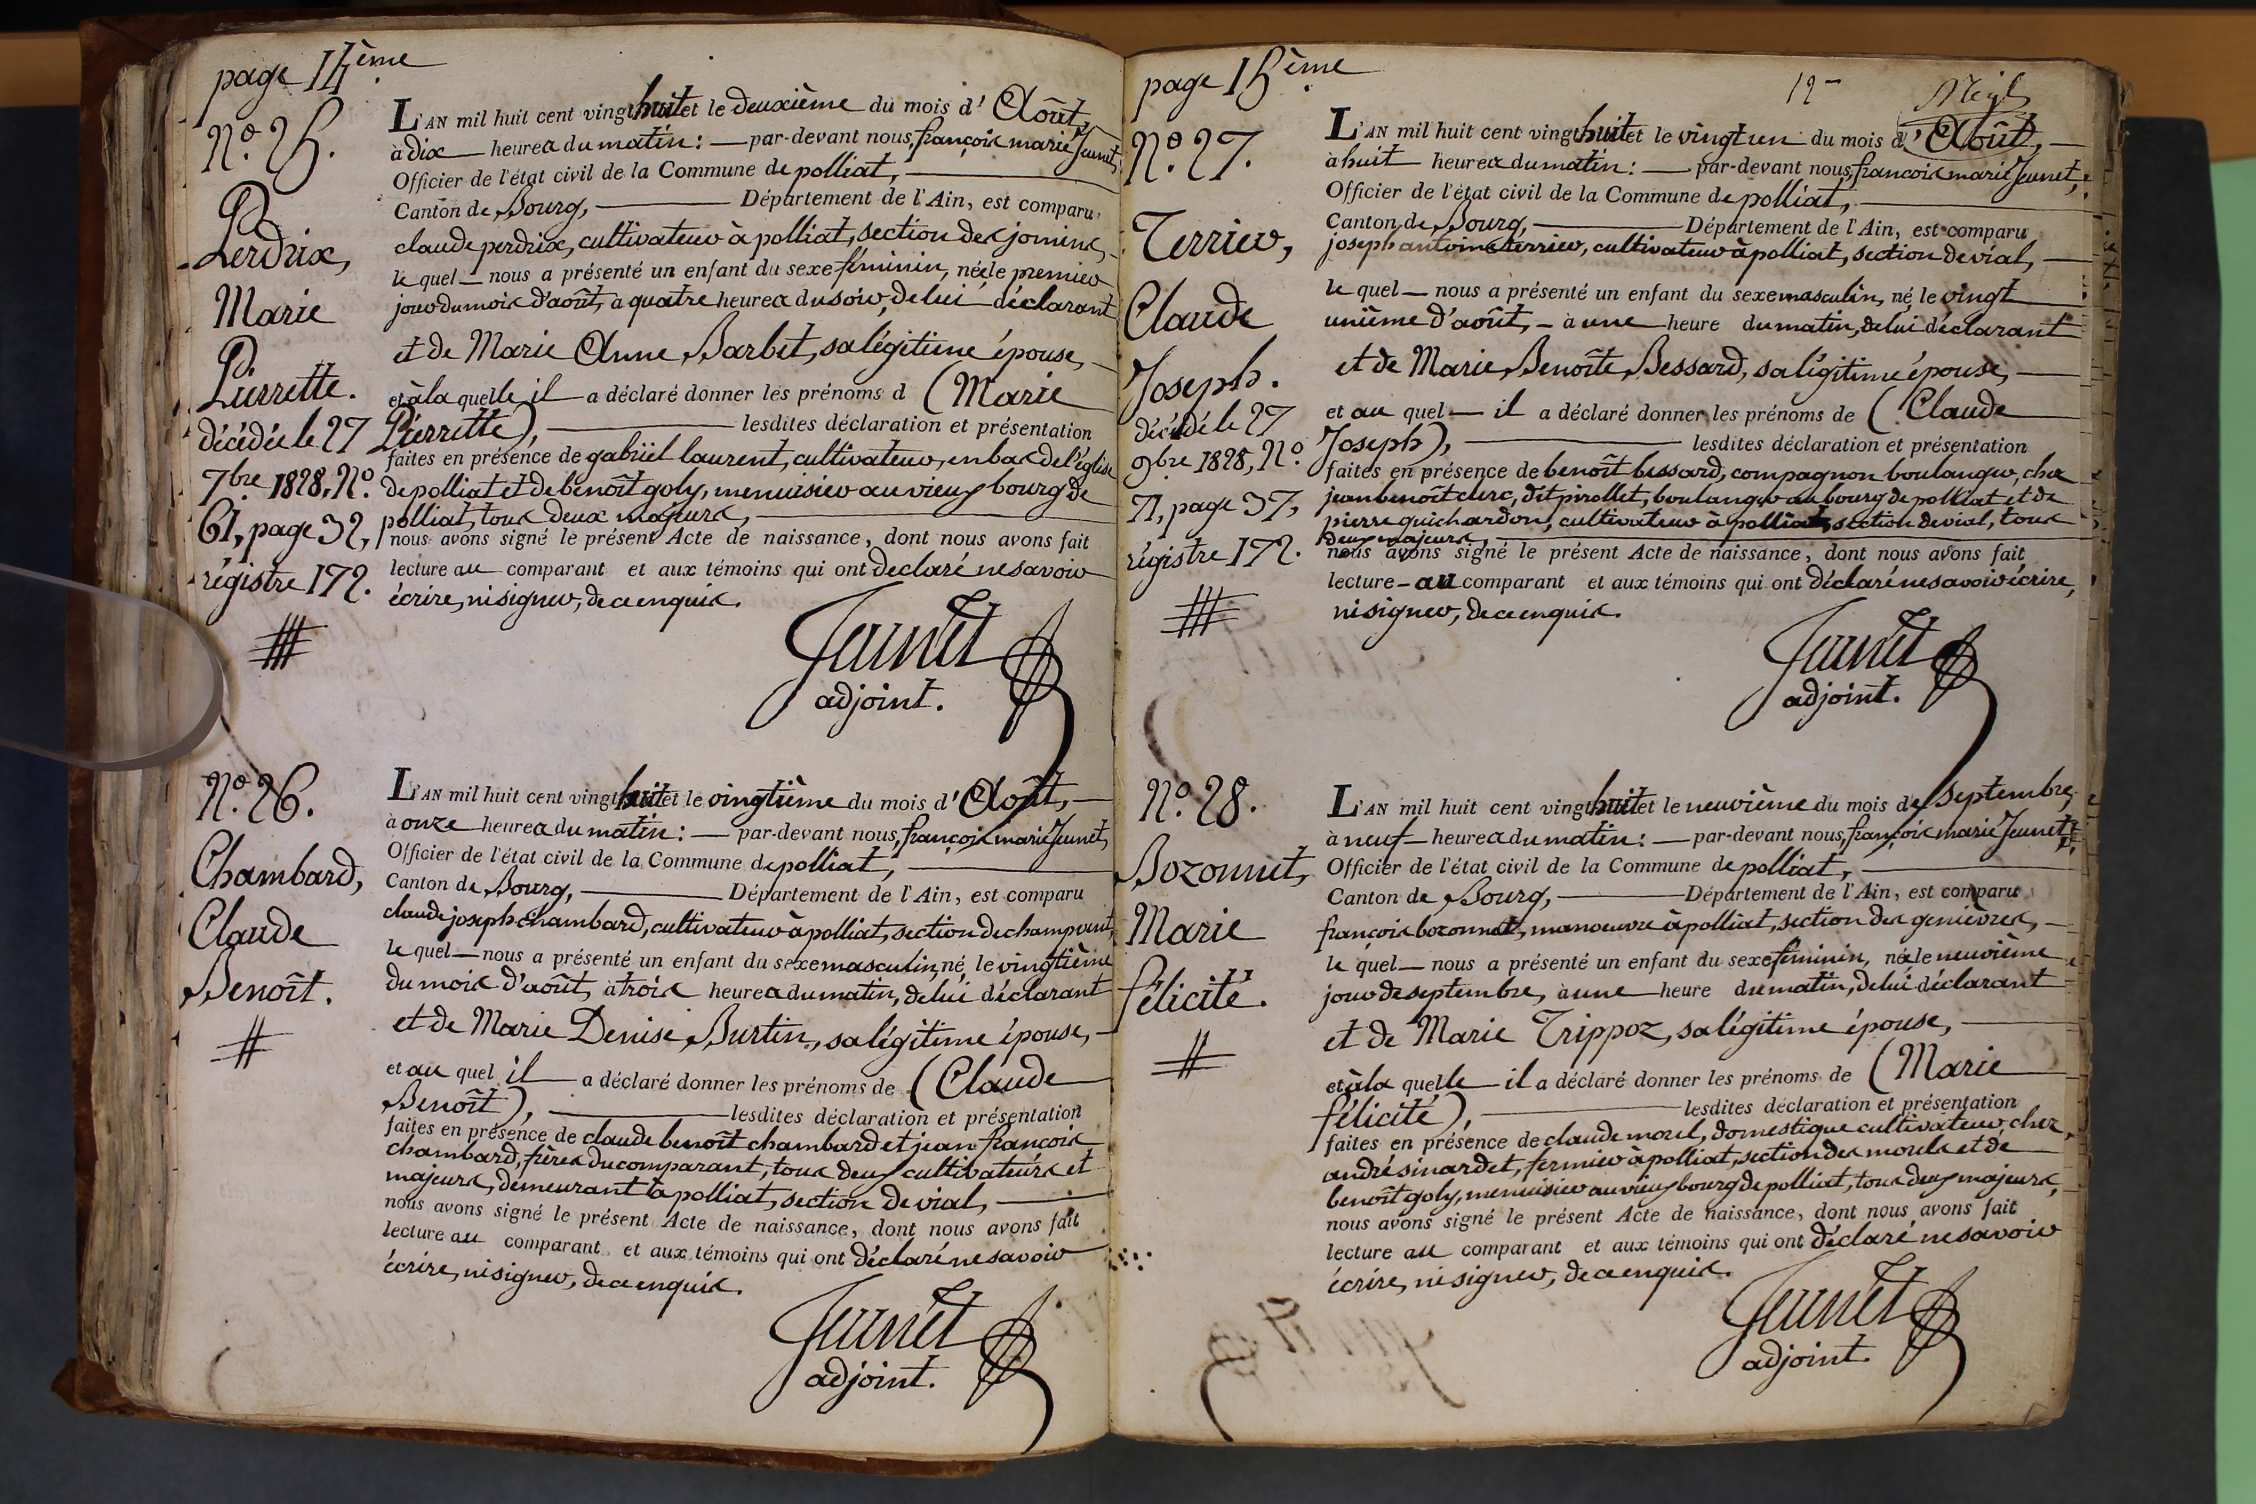 page 14ème
N.o 25.
Perdrix,
Marie
Pierrette.
décédée le 27
7bre 1828, N.o
61, page 32,
régistre 172.
L'AN mil huit cent vingt huit et le deuxième du mois d'Août,
à dix heures du matin : par-devant nous, françois marie Jeunet,
Officier de l'état civil de la Commune de polliat,
Canton de Bourg, Département de l'Ain, est comparu
claude perdrix, cultivateur à polliat, section des jomins,
le quel nous a présenté un enfant du sexe féminin, née le premier
jour du mois d'août, à quatre heures du soir, de lui déclarant
et de Marie Anne Barbet, sa légitime épouse,
et à la quelle il a déclaré donner les prénoms d (Marie
Pierrette), lesdites déclaration et présentation
faites en présence de gabriel laurent, cultivateur, en bas de l'église
de polliat et de benoît goly, menuisier au vieux bourg de
polliat, tous deux majeurs,
nous avons signé le présent Acte de naissance, dont nous avons fait
lecture au comparant et aux témoins qui ont déclaré ne savoir
écrire, ni signer, de ce enquis.
Jeunet
adjoint.
N.o 26.
Chambard,
Claude
Benoît.
L'AN mil huit cent vingt huit et le vingtième du mois d'Août,
à onze heures du matin : par-devant nous, françois marie Jeunet,
Officier de l'état civil de la Commune de polliat,
Canton de Bourg, Département de l'Ain, est comparu
claude joseph chambard, cultivateur à polliat, section de champvent,
le quel nous a présenté un enfant du sexe masculin, né le vingtième
du mois d'août, à trois heures du matin, de lui déclarant
et de Marie Denise Burtin, sa légitime épouse,
et au quel il a déclaré donner les prénoms de (Claude
Benoît), lesdites déclaration et présentation
faites en présence de claude benoît chambard et jean françois
chambard, frères du comparant, tous deux cultivateurs et
majeurs, demeurant à polliat, section de vial,
nous avons signé le présent Acte de naissance, dont nous avons fait
lecture au comparant et aux témoins qui ont déclaré ne savoir
écrire, ni signer, de ce enquis.
Jeunet
adjoint.
page 15ème
N.o 27.
Terrier,
Claude
Joseph.
décédé le 27
9bre 1828, N.o
71, page 37,
régistre 172.
L'AN mil huit cent vingt huit et le vingt un du mois d'Août,
à huit heures du matin : par-devant nous, françois marie Jeunet,
Officier de l'état civil de la Commune de polliat,
Canton de Bourg, Département de l'Ain, est comparu
joseph antoine terrier, cultivateur à polliat, section de vial,
le quel nous a présenté un enfant du sexe masculin, né le vingt
unième d'août, à une heure du matin, de lui déclarant
et de Marie Benoîte Bessard, sa légitime épouse,
et au quel il a déclaré donner les prénoms de (Claude
Joseph), lesdites déclaration et présentation
faites en présence de benoît bessard, compagnon boulanger, chez
jean benoît clerc, dit pirollet, boulanger au bourg de polliat et de
pierre guichardon, cultivateur à polliat, section de vial, tous
deux majeurs,
nous avons signé le présent Acte de naissance, dont nous avons fait
lecture au comparant et aux témoins qui ont déclaré ne savoir écrire,
ni signer, de ce enquis.
Jeunet
adjoint.
N.o 28.
Bozonnet,
Marie
félicité.
L'AN mil huit cent vingt huit et le neuvième du mois de septembre,
à neuf heures du matin : par-devant nous, françois marie Jeunet,
Officier de l'état civil de la Commune de polliat,
Canton de Bourg, Département de l'Ain, est comparu
françois bozonnet, manoeuvre à polliat, section des genièvres,
le quel nous a présenté un enfant du sexe féminin, née le neuvième
jour de septembre, à une heure du matin, de lui déclarant
et de Marie Trippoz, sa légitime épouse,
et à la quelle il a déclaré donner les prénoms de (Marie
félicité), lesdites déclaration et présentation
faites en présence de claude morel, domestique cultivateur, chez
andré sinardet, fermier à polliat, section des morels et de
benoît goly, menuisier au vieux bourg de polliat, tous deux majeurs,
nous avons signé le présent Acte de naissance, dont nous avons fait
lecture au comparant et aux témoins qui ont déclaré ne savoir
écrire, ni signer, de ce enquis.
Jeunet
adjoint.